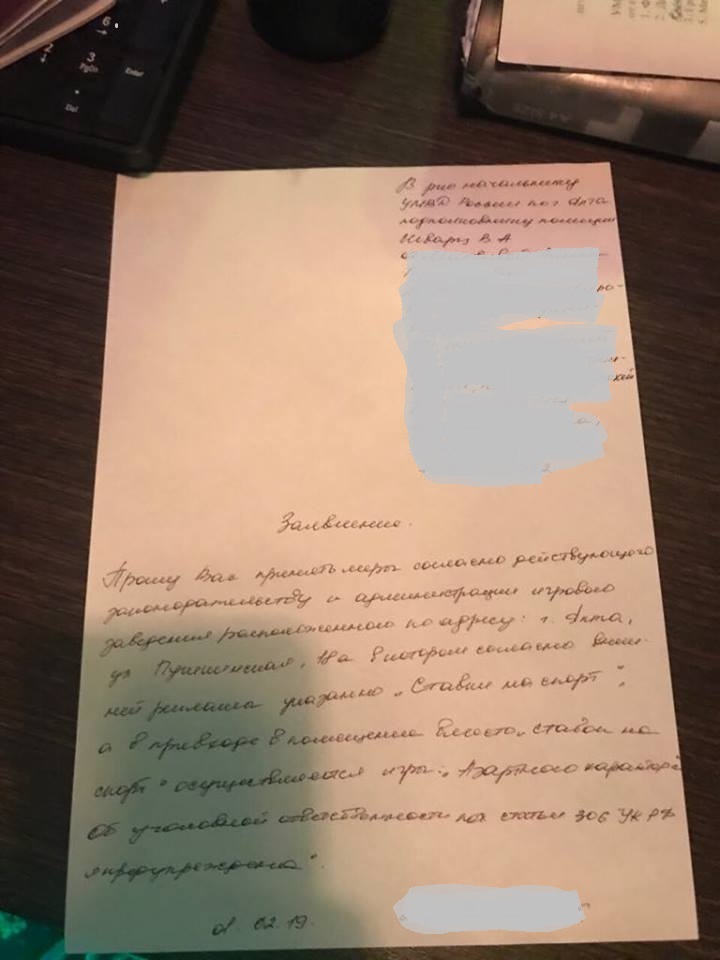 6
2
3
PgDn
Enter
Del
В рио начальнику
УМВД России по г Ялта
подполковнику полиции
В А
Заявление.
Прошу Вас принять меры согласно действующего
законодательству и администрации игрового
заведения расположенного по адресу: г. Ялта,
ул Пушкинская, 18а в котором согласно внеш-
ней реклама указанно „Ставки на спорт",
а в привходе в помещение вместо „ставок на
спорт" осуществляются игры „Азартного характера
Об уголовной ответственности по статьи 306 УК РФ
я предупреждена".
02.19.